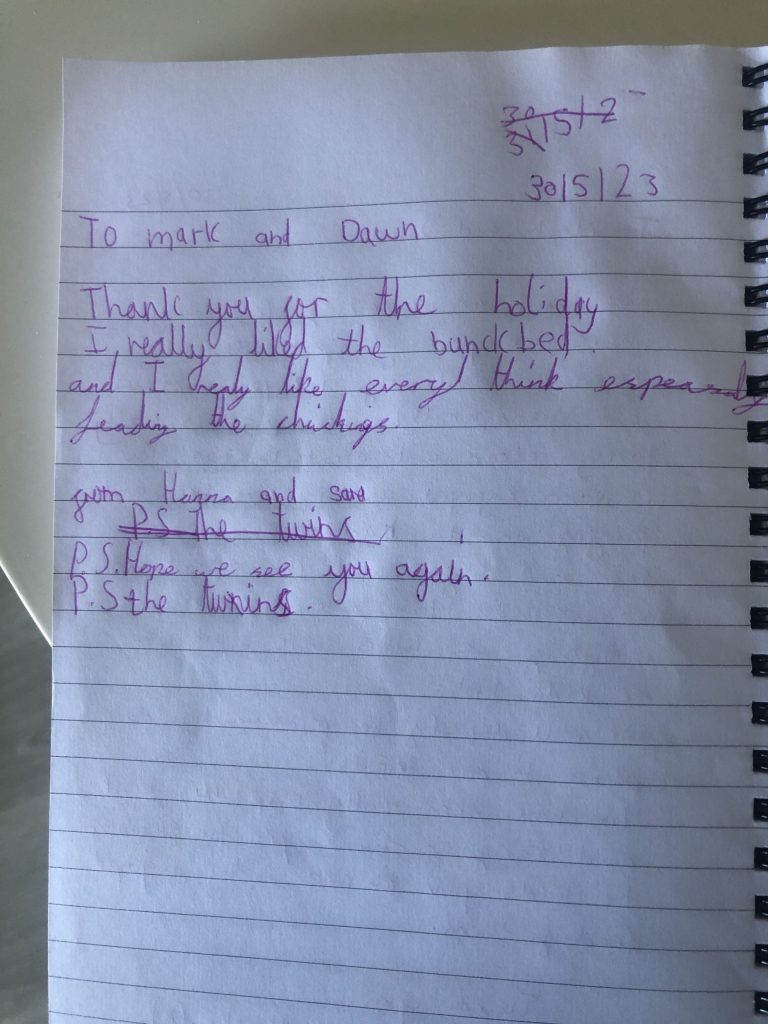 30/5/23
To mark and Dawn
Thank you for the holiday
I really liked the bunckbed
and I like every think
feading the chickings.
from Hanna and sara
P.S. The twins
P.S. Hope we see you again.
P.S the twins.